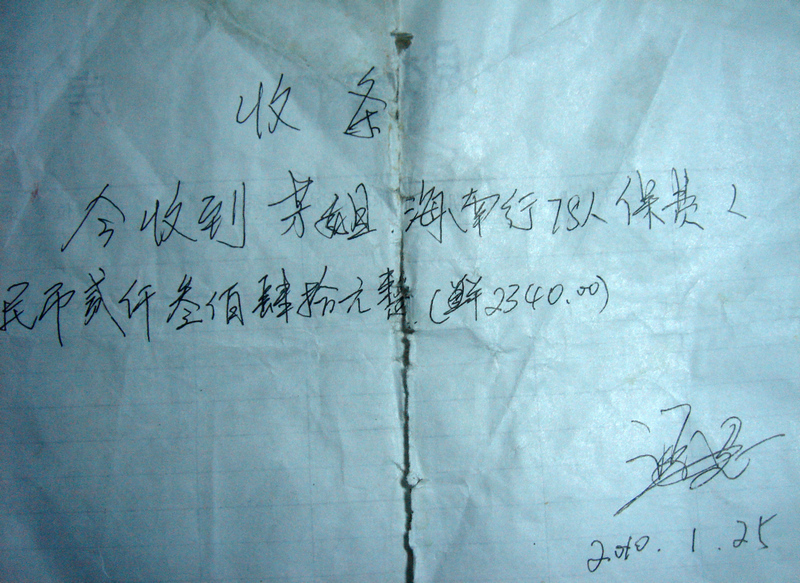 收条
今收到 某姐.海南行78人保费人
民币贰仟叁佰肆拾元整.(¥2340.00)
2010.1.25